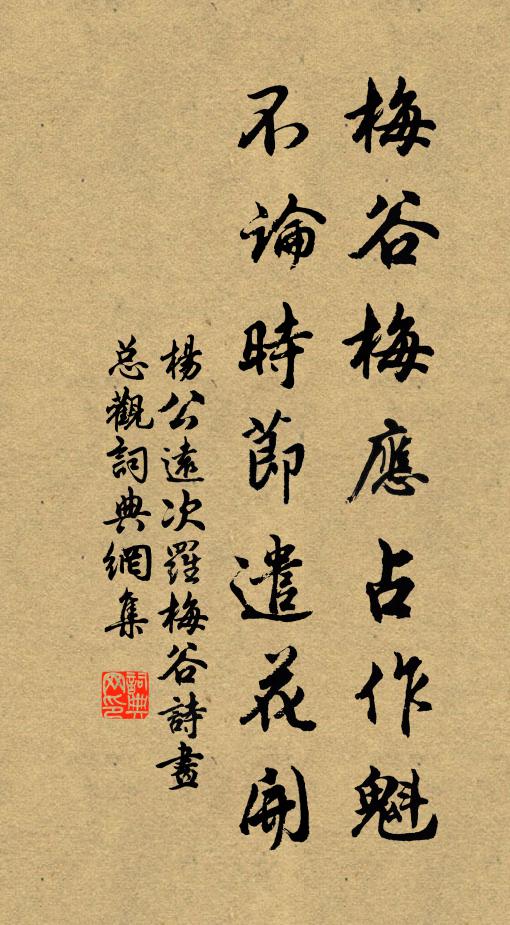 梅谷梅應占作魁
不論時節遣花開
楊公遠次羅梅谷詩畫
总觀詞典網集
詞典
网印